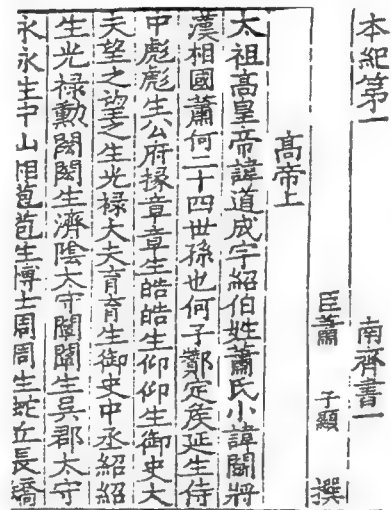 本紀第一 南齊書一
臣蕭 子顯 撰
高帝上
太祖高皇帝諱道成字紹伯姓蕭氏小諱鬬將
漢相國蕭何二十四世孫也何子酇定侯延生侍
中彪彪生公府掾章章生皓皓生仰仰生御史大
夫望之望之生光禄大夫育育生御史中丞紹紹
生光禄勳閎閎生濟陰太守闡闡生吳郡太守
永永生中山相苞苞生博士周周生蛇丘長矯